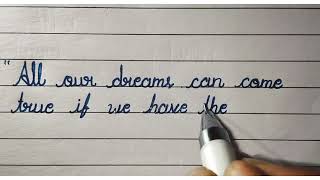 "All our dreams can come
true if we have the